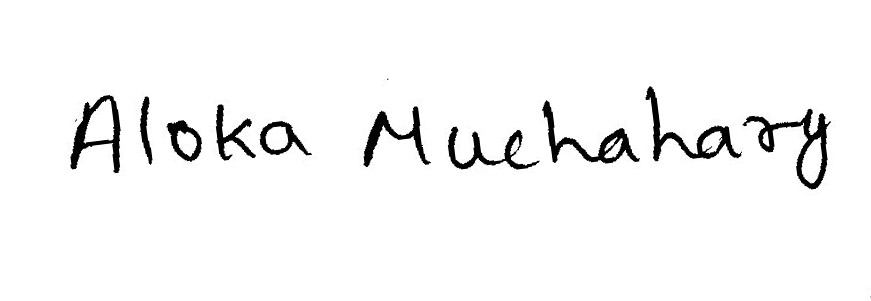 Aloka Muchahary